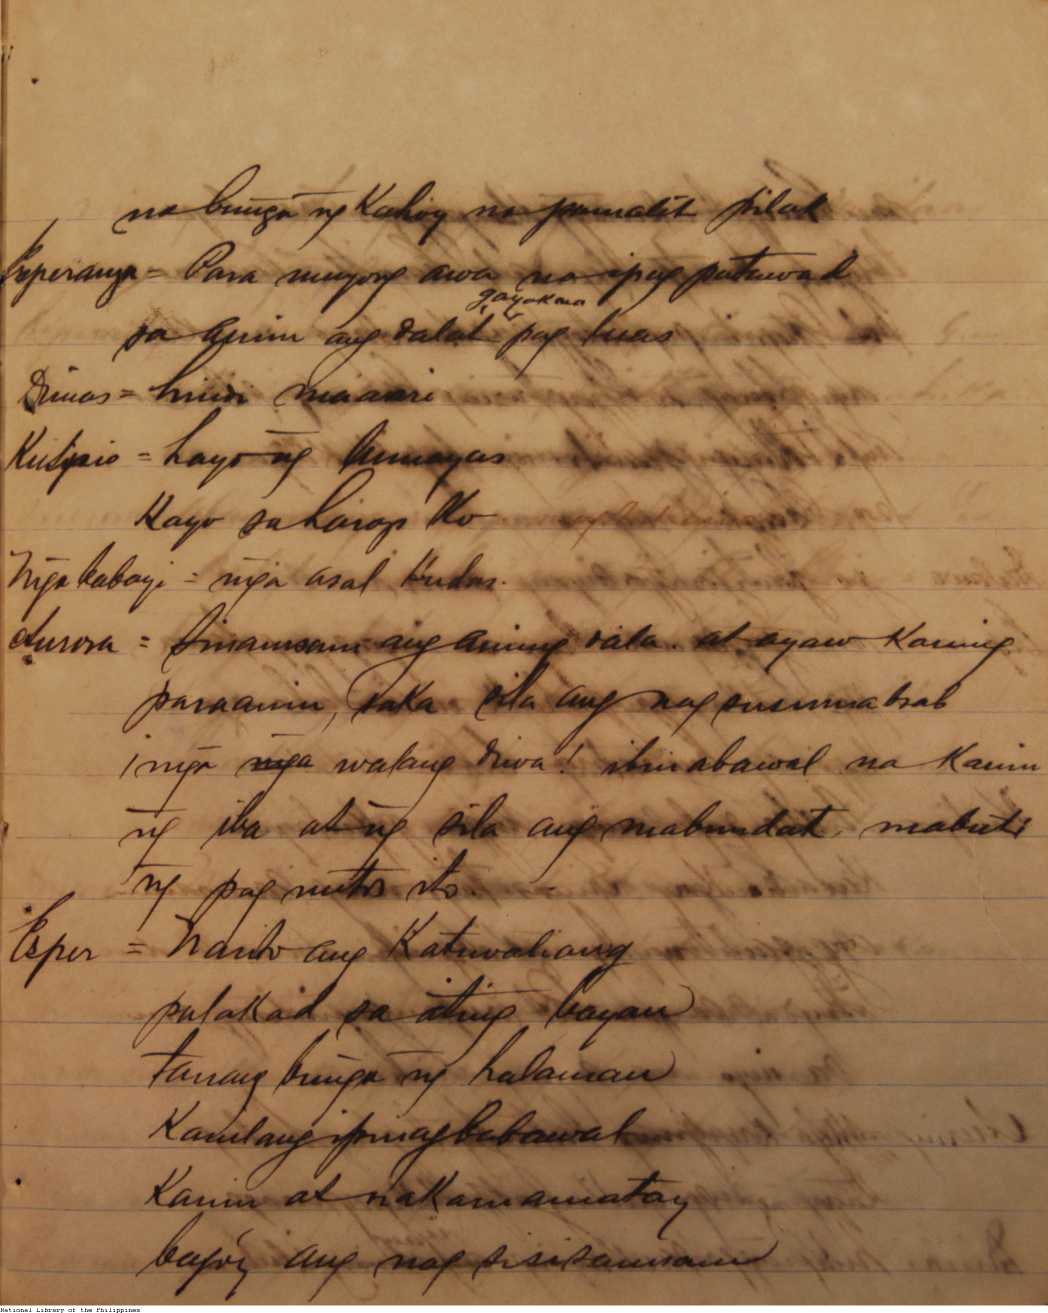 na bunga ng Kahoy na pumalit pilak
Esperanza = Para munyong awa na ipag patawad
gayakma
sa amin ang dalat pag luas
Dimas = hindi maaari
= hayo ng lumayas
Kayo sa harap Ko
Mga babayi = mga asal hudas.
Aurora = Sinamsam ang aming dala. at ayaw Kaming
paraanin, saka sila ang nag susumabsab
¡mga mga walang diwa! ibinabawal na Kanin
ng iba at ng sila ang mabundat. mabuti
ng pag mitos ito.
Esper = Narito ang Katuwaliang
palakad sa ating bayan
tanang bunga ng halaman
Kanilang ipinagbabawal
Kanin at nakamamatay
bagóy ang nag sisisamsam
National Library of the Philippines